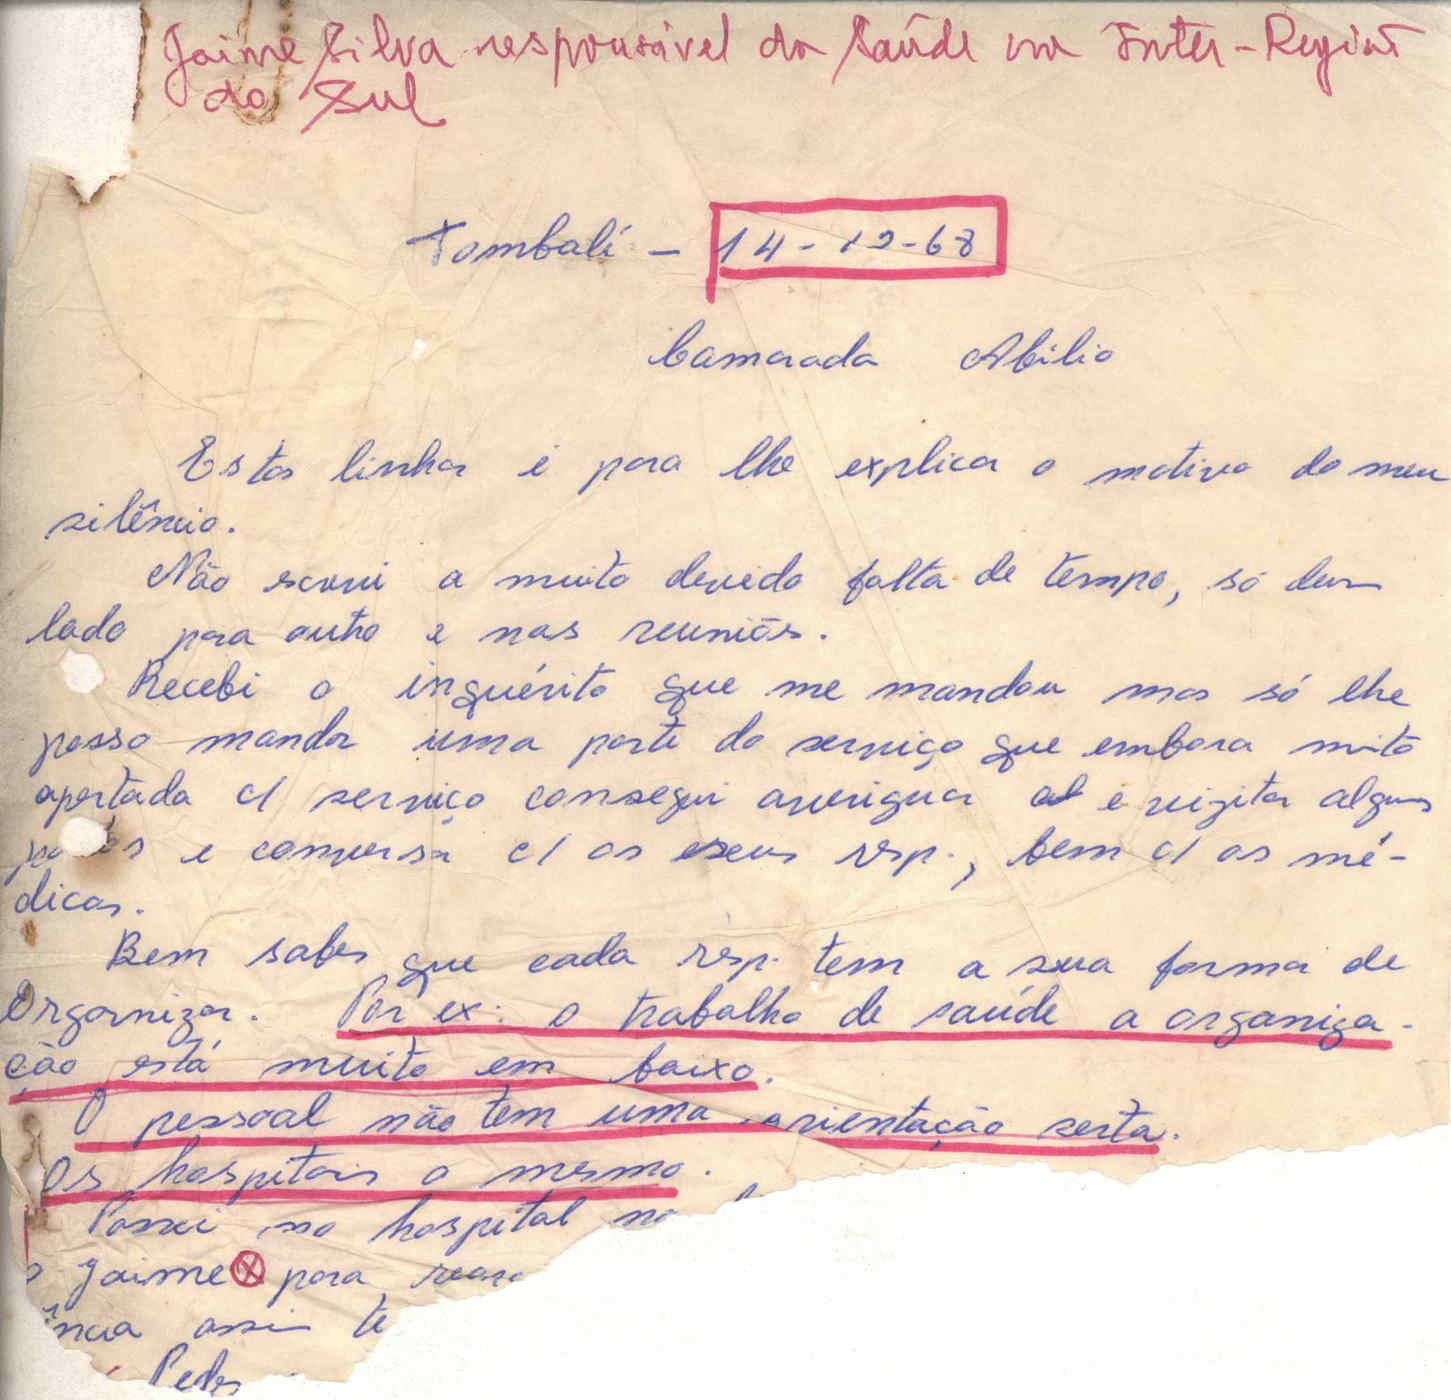 Jaime Silva responsável da Saúde na Inter-Região
do Sul
Tombali - 14-12-68
Camarada Abilio
Estas linhas é para lhe explicar o motivo do meu
silêncio.
Não scrvi a muito devido falta de tempo, só dum
lado para outro e nas reuniõs.
Recebi o inguérito que me mandou mas só lhe
posso mandar uma parte do serviço que embora muito
apertada c/ serviço consegui averiguar e vizitar alguns
e conversar c/ os seus resp., bem c/ os mé-
dicos.
Bem sabes que cada resp. tem a sua forma de
Organizar. Por ex: o trabalho de saúde a organiza-
ção está muito em baixo.
O pessoal não tem uma orientação serta.
Os hospitais o mesmo.
Passei no hospital
Jaime para
assim